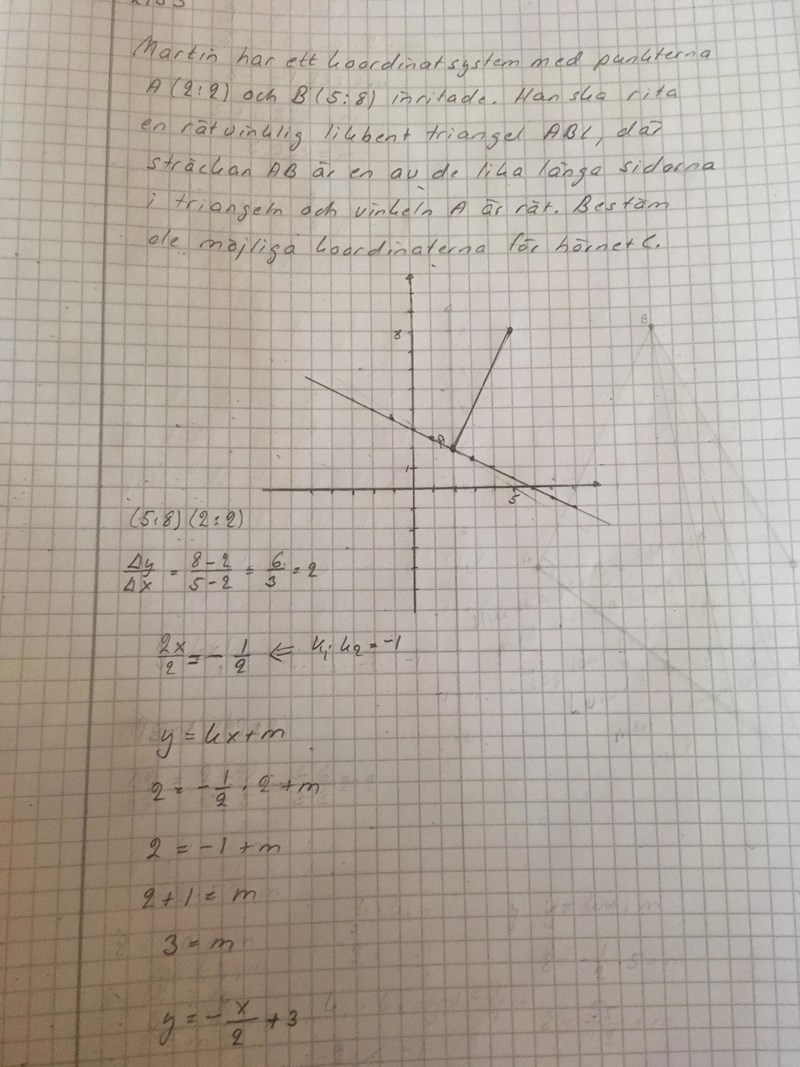 Martin har ett koordinatsystem med punkterna
A (2:2) och B (5:8) inritade. Han ska rita
en rätvinklig likbent triangel ABC, där
sträckan AB är en av de lika långa sidorna
i triangeln och vinkeln A är rät. Bestäm
de möjliga koordinaterna för hörnet C.
8
B
1
5
(5:8) (2:2)
Δy/Δx = 8-2/5-2 = 6/3 = 2
2x/2 = -1/2 ⇐ k₁·k₂ = -1
y = kx+m
2 = -1/2 · 2 + m
2 = -1 + m
2+1 = m
3 = m
y = -x/2 + 3